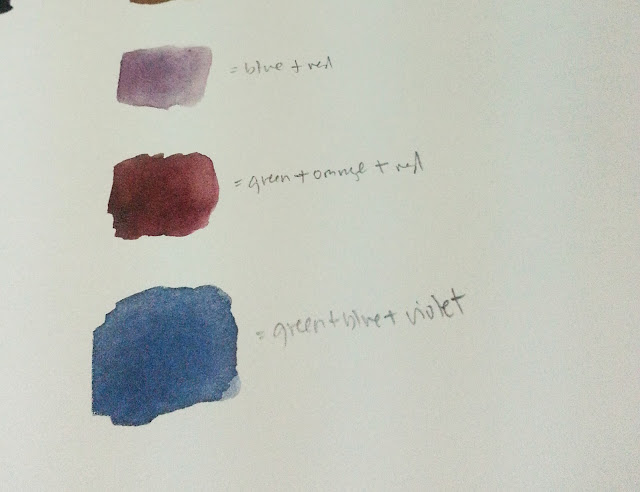 = blue + red
= green + orange + red
= green + blue + violet